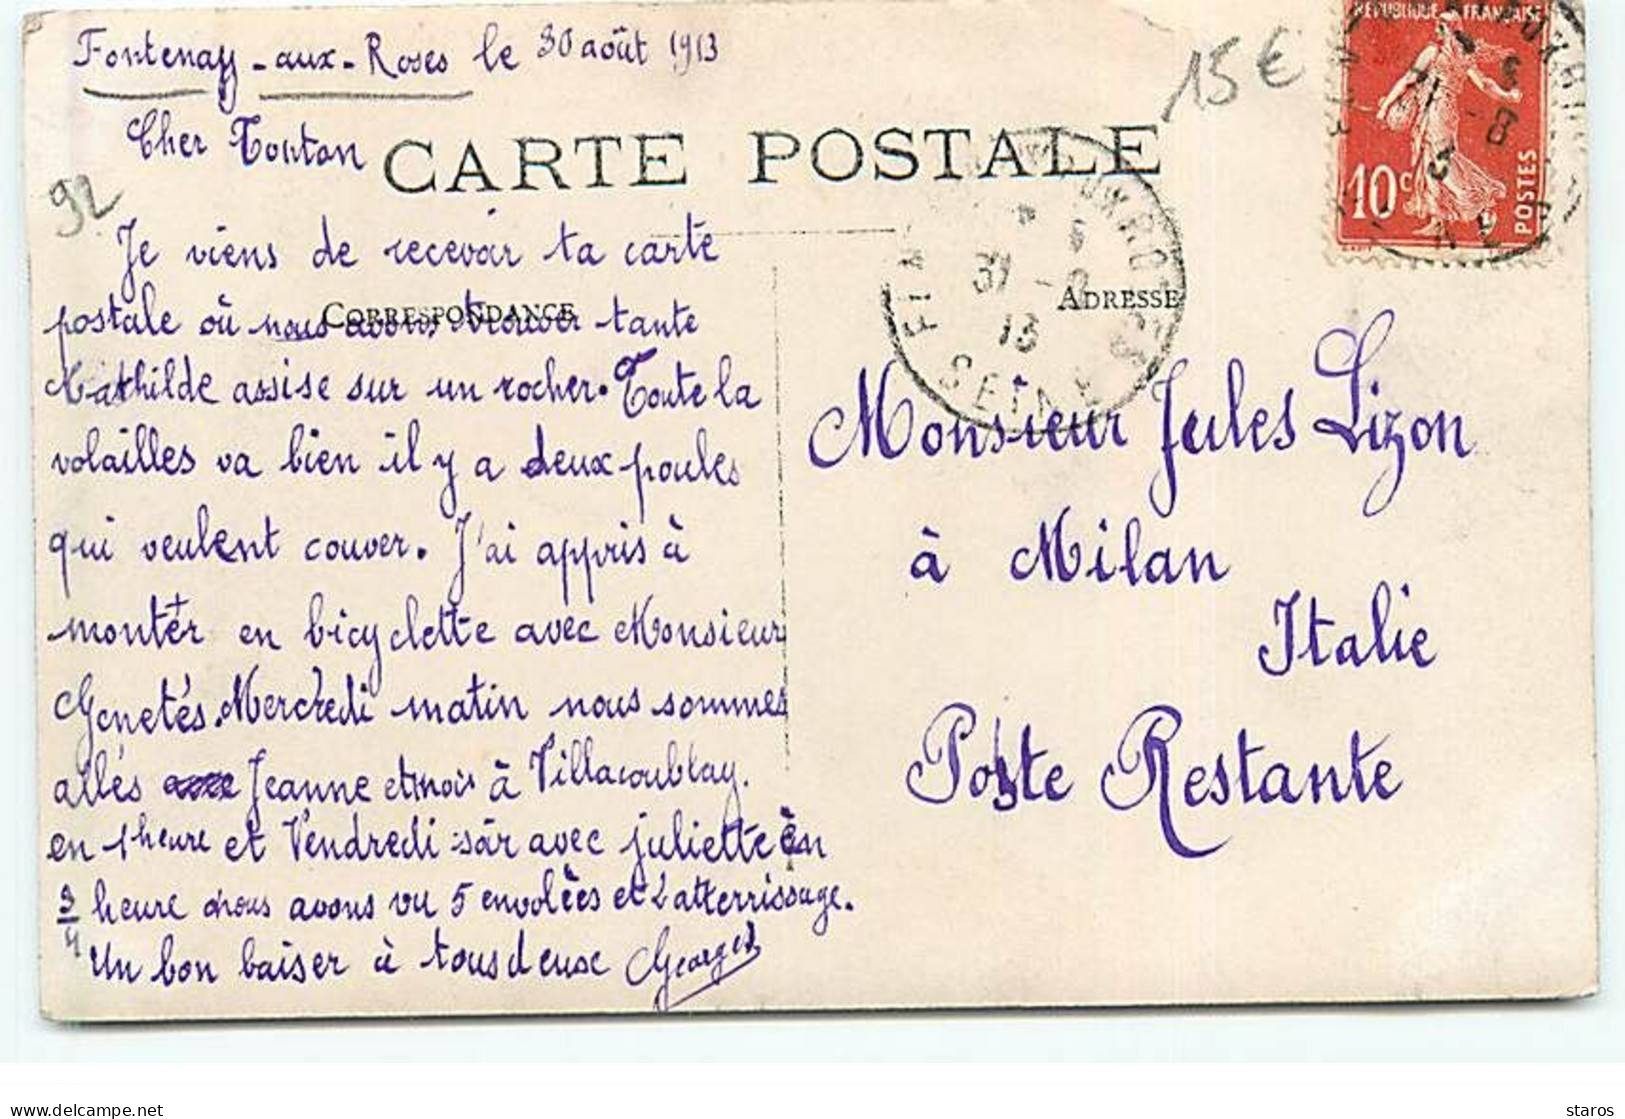 Fontenay-aux-Roses le 30 août 1913
15€
RÉPUBLIQUE FRANÇAISE
10c
POSTES
Cher Tonton
CARTE POSTALE
92
Je viens de recevoir ta carte
CORRESPONDANCE
postale où nous avons trouver tante
Mathilde assise sur un rocher. Toute la
volailles va bien il y a deux poules
qui veulent couver. J'ai appris à
montér en bicyclette avec Monsieur
Genetés. Mercredi matin nous sommes
allés Jeanne et moi à Villacoublay.
en 1 heure et Vendredi soir avec juliette en
3/4 heure nous avons vu 5 envolées et 2 atterrissage.
Un bon baiser à tous deux Georges
31 -8
13
SEINE
ADRESSE
Monsieur Jules Lizon
à Milan
Italie
Poste Restante
delcampe.net
staros